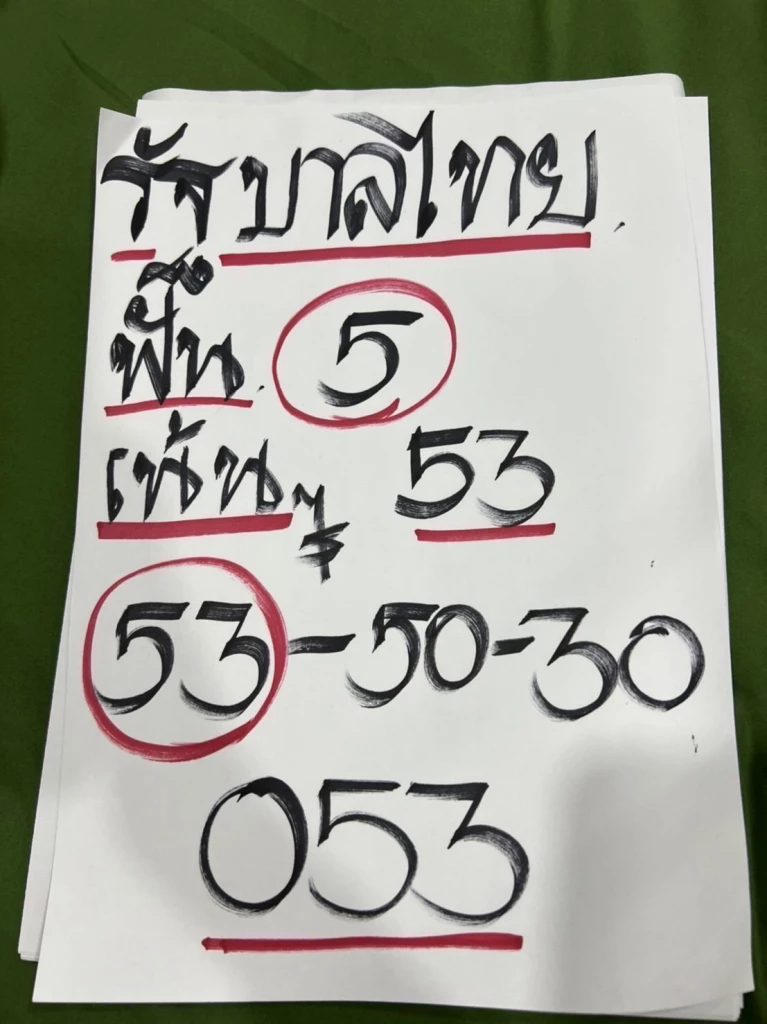 รัฐบาลไทย
ฟัน 5
เน้น 53
53-50-30
053